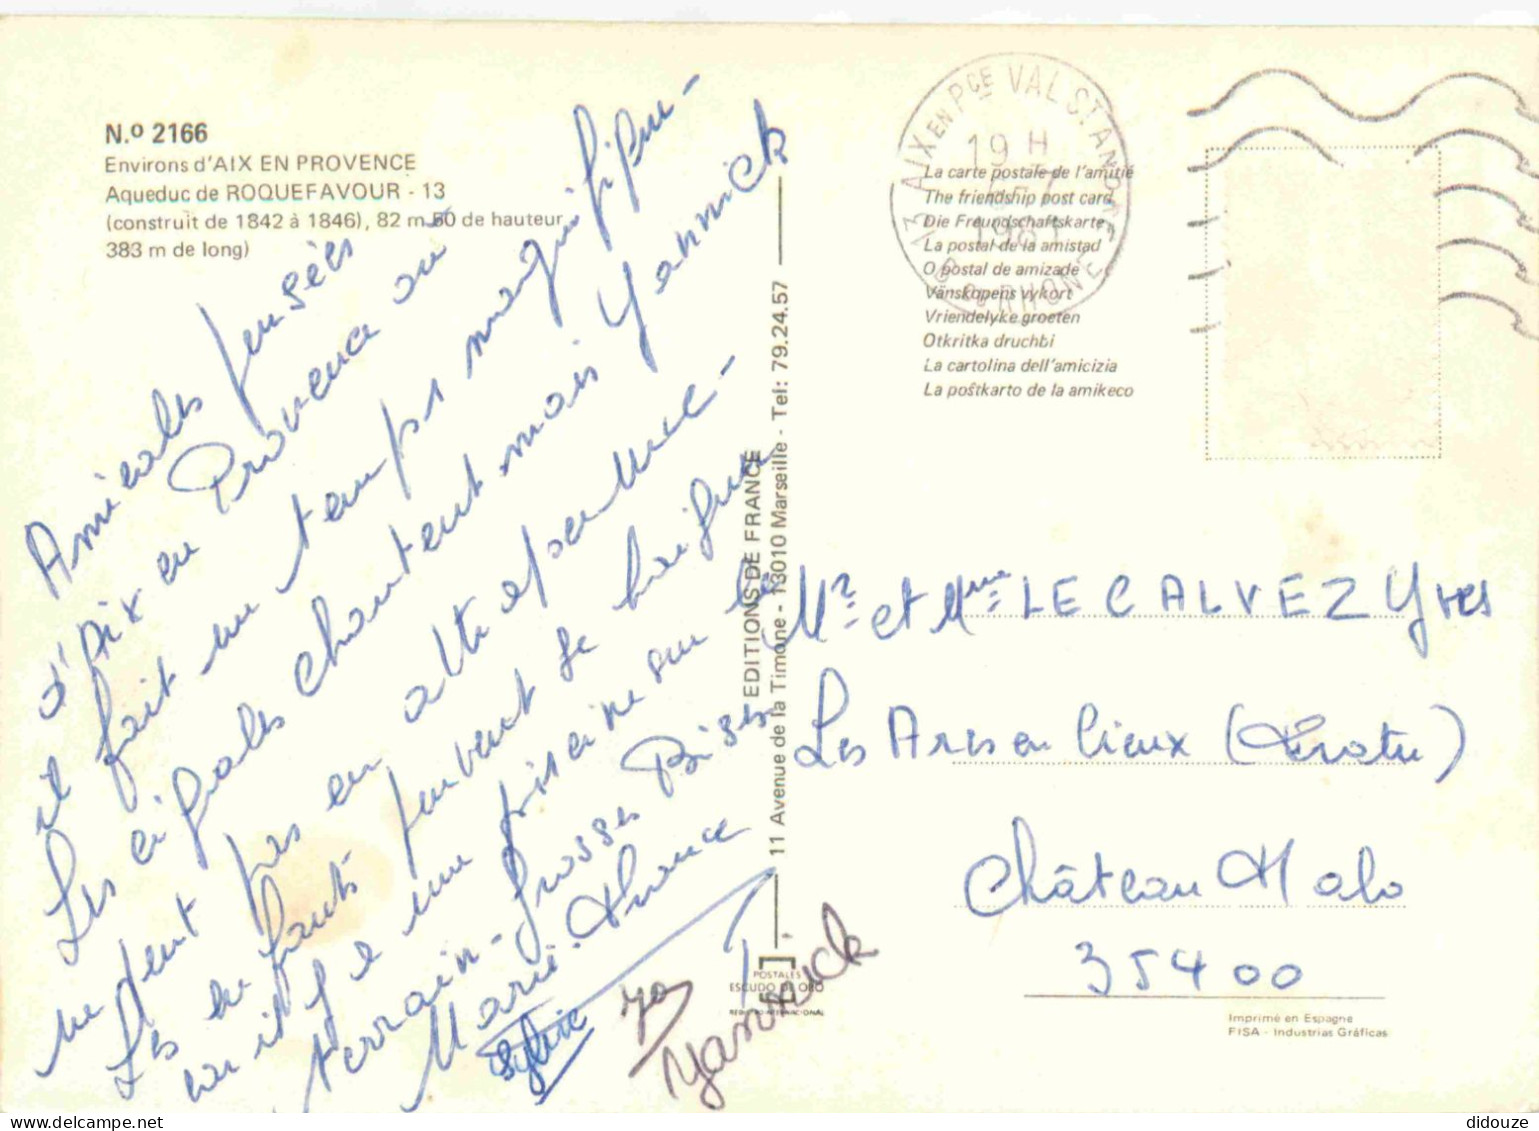 N.º 2166
Environs d'AIX EN PROVENCE
Aqueduc de ROQUEFAVOUR - 13
(construit de 1842 à 1846), 82 m 50 de hauteur
383 m de long)
Amicales pensées
d'Aix en Provence où
il fait un temps magnifique -
Les cigales chantent mais Yannick
ne peut pas en attraper une -
Les enfants peuvent se baigner
car il y a une piscine sur le
terrain - Grosses Bises
Marie-France
Sylvie
Yannick
EDITIONS DE FRANCE
11 Avenue de la Timone - 13010 Marseille - Tel: 79.24.57
POSTALES
ESCUDO DE ORO
REGISTRO INTERNACIONAL
13 AIX EN PCE VAL ST ANDRE
B. DU RHONE
19 H
La carte postale de l'amitié
The friendship post card
Die Freundschaftskarte
La postal de la amistad
O postal de amizade
Vänskapens vykort
Vriendelyke groeten
Otkritka druchbi
La cartolina dell'amicizia
La poŝtkarto de la amikeco
Mr et Mme LE CALVEZ Yves
Les Ares en lieux
Château Malo
35400
Imprimé en Espagne
FISA - Industrias Gráficas
didouze